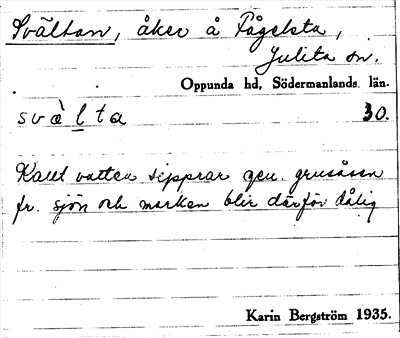 Svältan, åker å Fågelsta,
Julita sn.
Oppunda hd, Södermanlands län.
svàlta 30.
Kallt vatten sipprar gen. grusåsen
fr. sjön och marken blir därför dålig
Karin Bergström 1935.